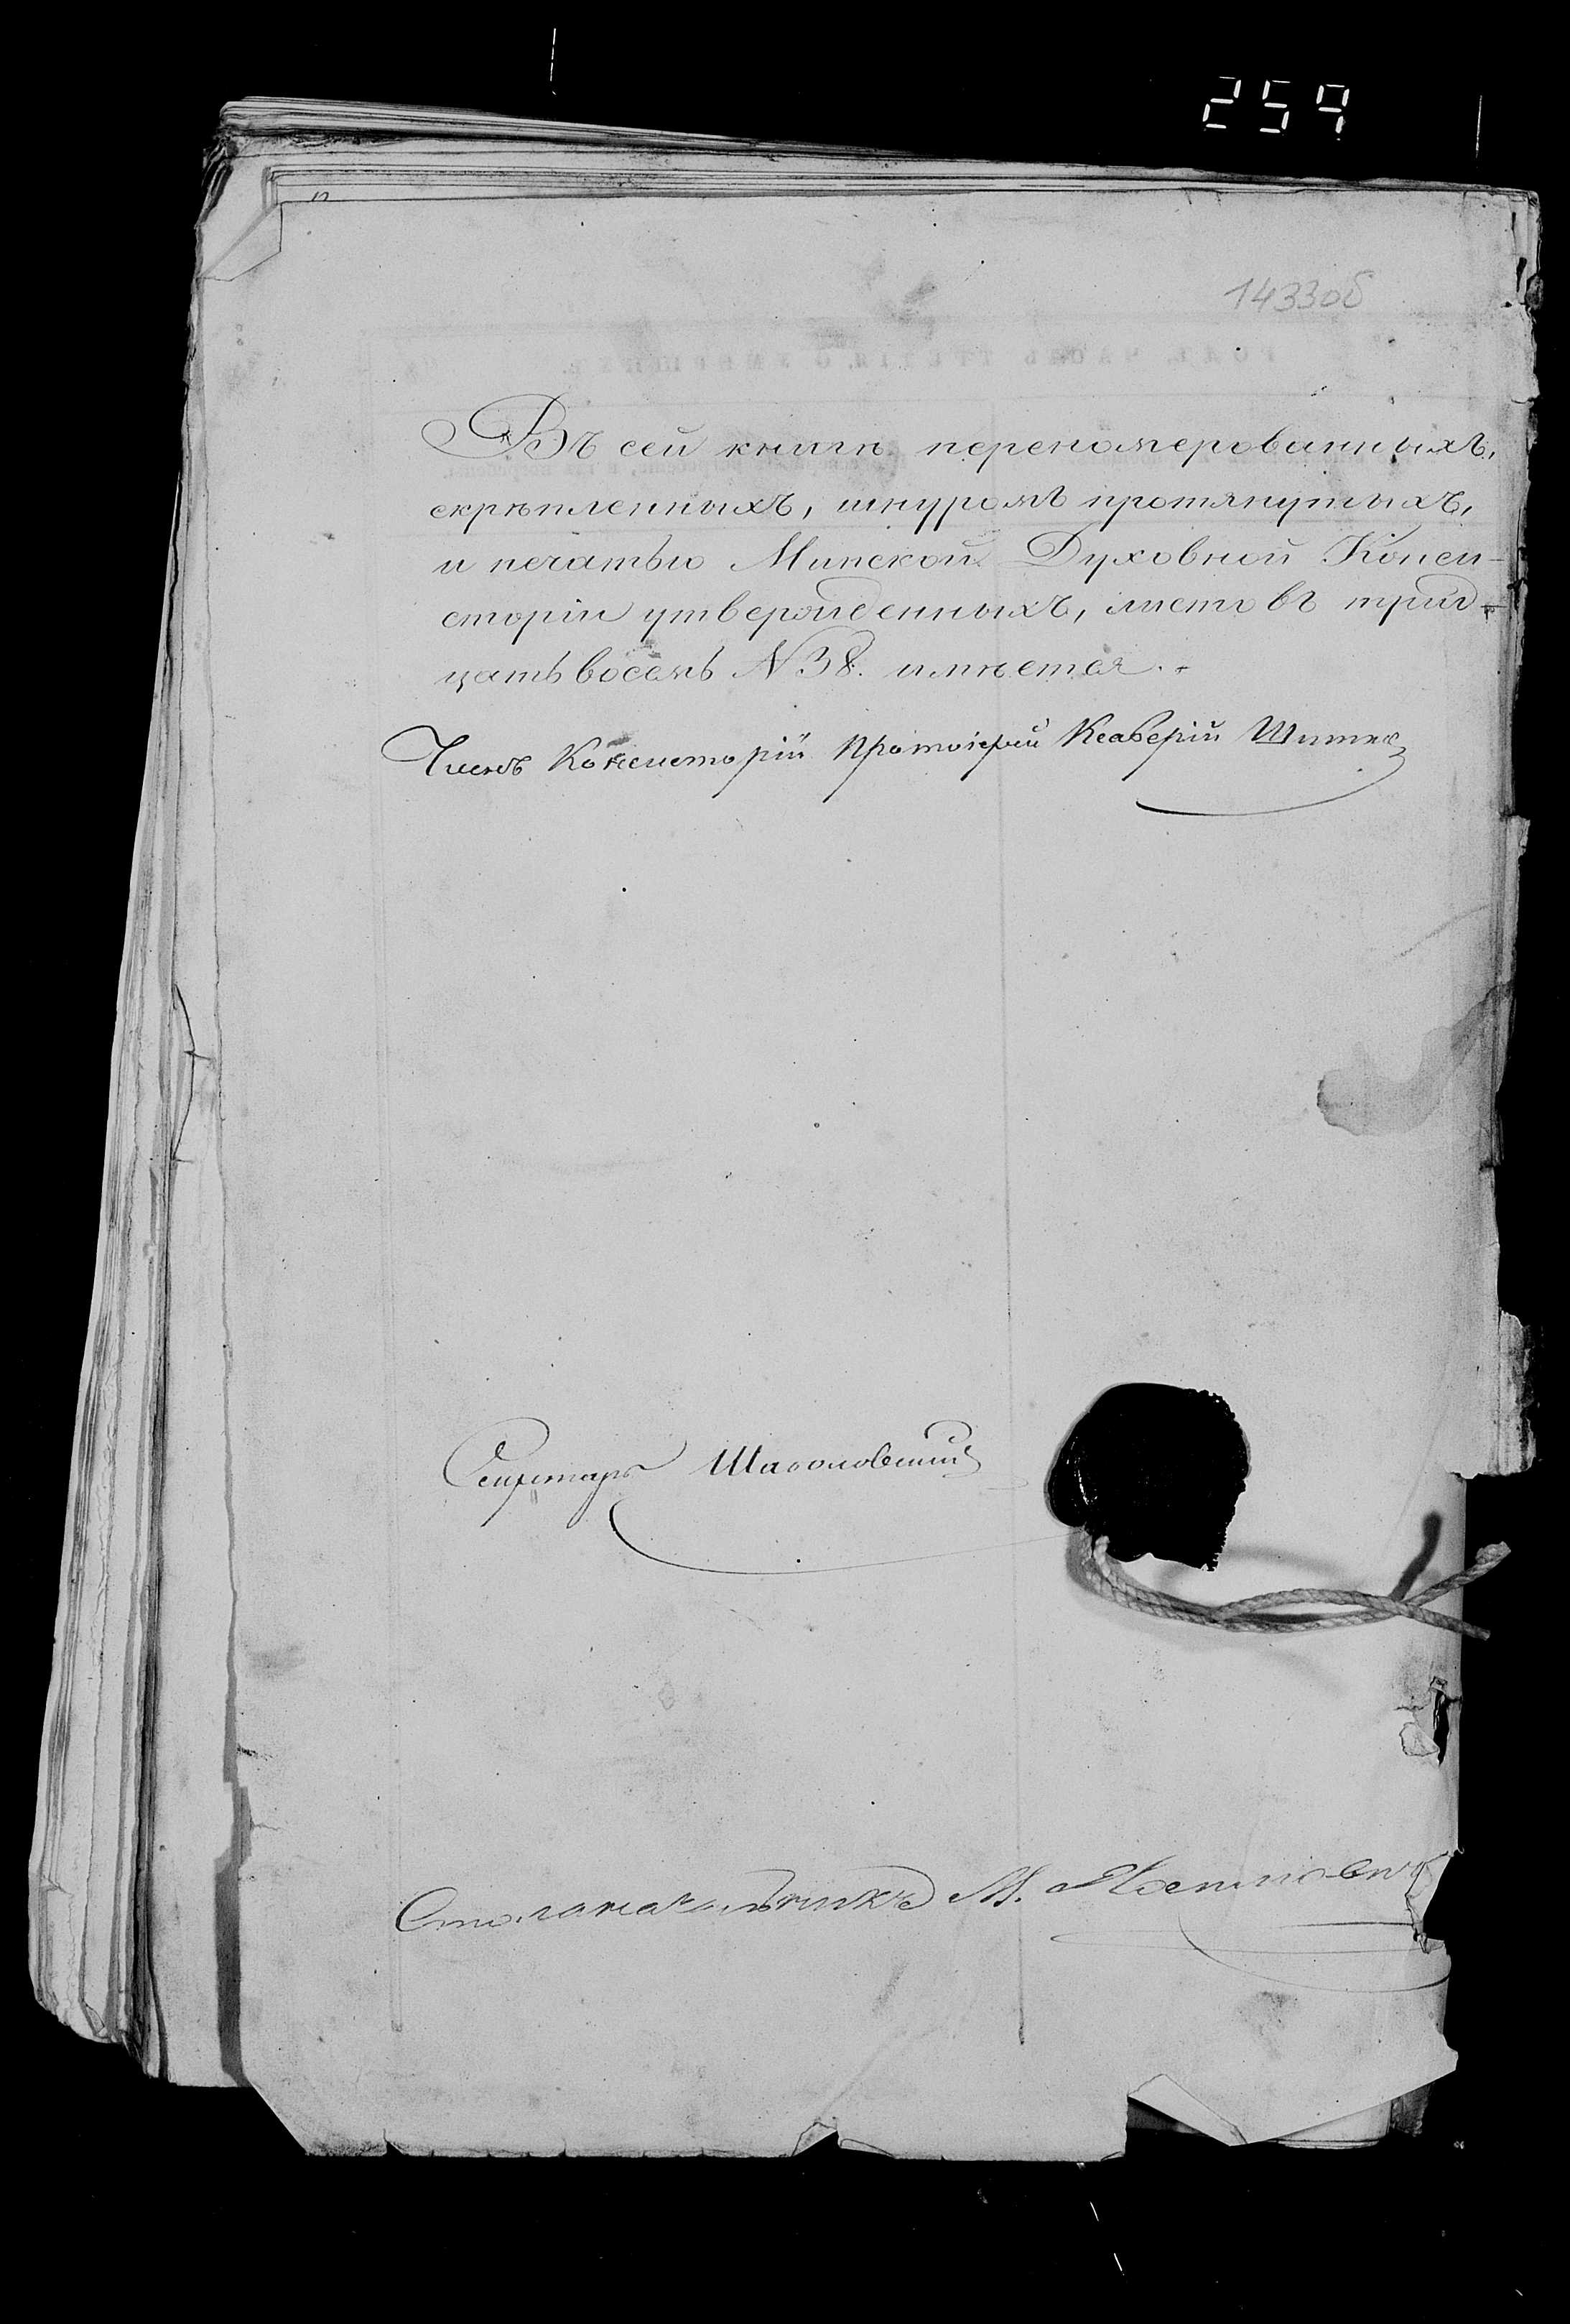 259
1433об
Въ сей книгѣ переномерованныхъ,
скрѣпленныхъ, шнуромъ протянутыхъ,
и печатью Минской Духовной Конси-
сторіи утвержденныхъ, листовъ трид-
цать восемь №38. имѣется.
Членъ Консисторіи Протоіерей Ксаверій
Секретарь
Столоначальникъ М.